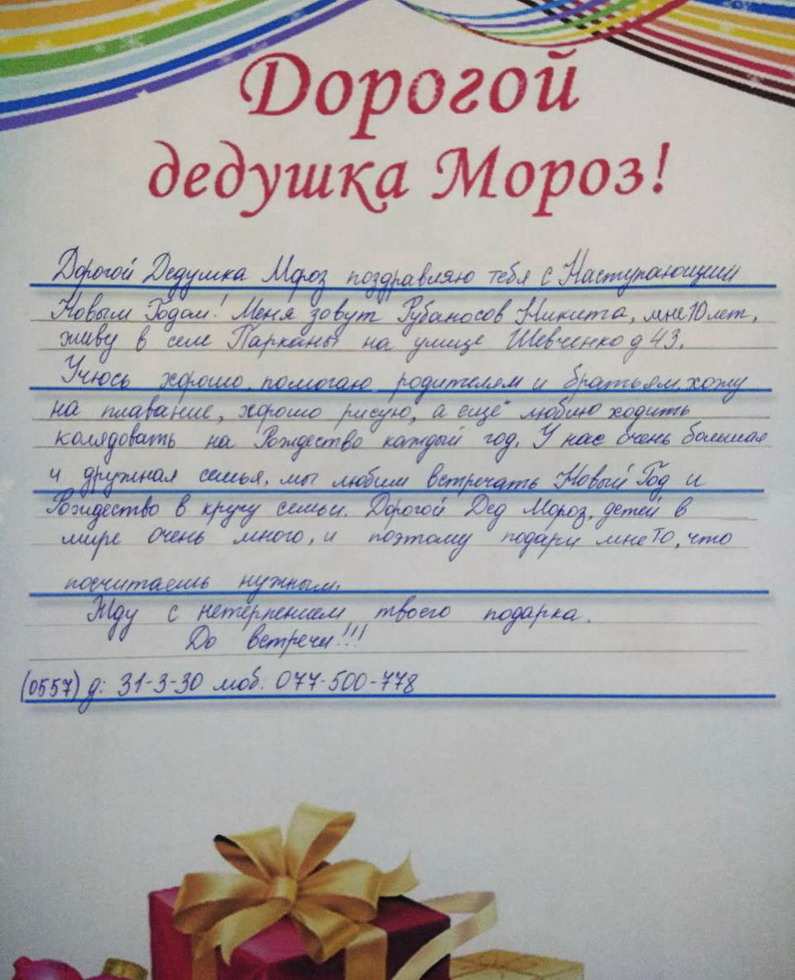 Дорогой
дедушка Мороз!
Дорогой Дедушка Мороз поздравляю тебя с Наступающим
Новым Годом! Меня зовут Рубаносов Никита, мне 10 лет,
живу в селе Парканы на улице Шевченко д 43.
Учусь хорошо, помогаю родителям и братьям, хожу
на плавание, хорошо рисую, а ещё люблю ходить
колядовать на Рождество каждый год. У нас очень большая
и дружная семья. мы любим встречать Новый Год и
Рождество в кругу семьи. Дорогой Дед Мороз, детей в
мире очень много, и поэтому подари мне то, что
посчитаешь нужным.
Жду с нетерпением твоего подарка.
До встречи!!!
(0557) д: 31-3-30 моб. 077-500-778